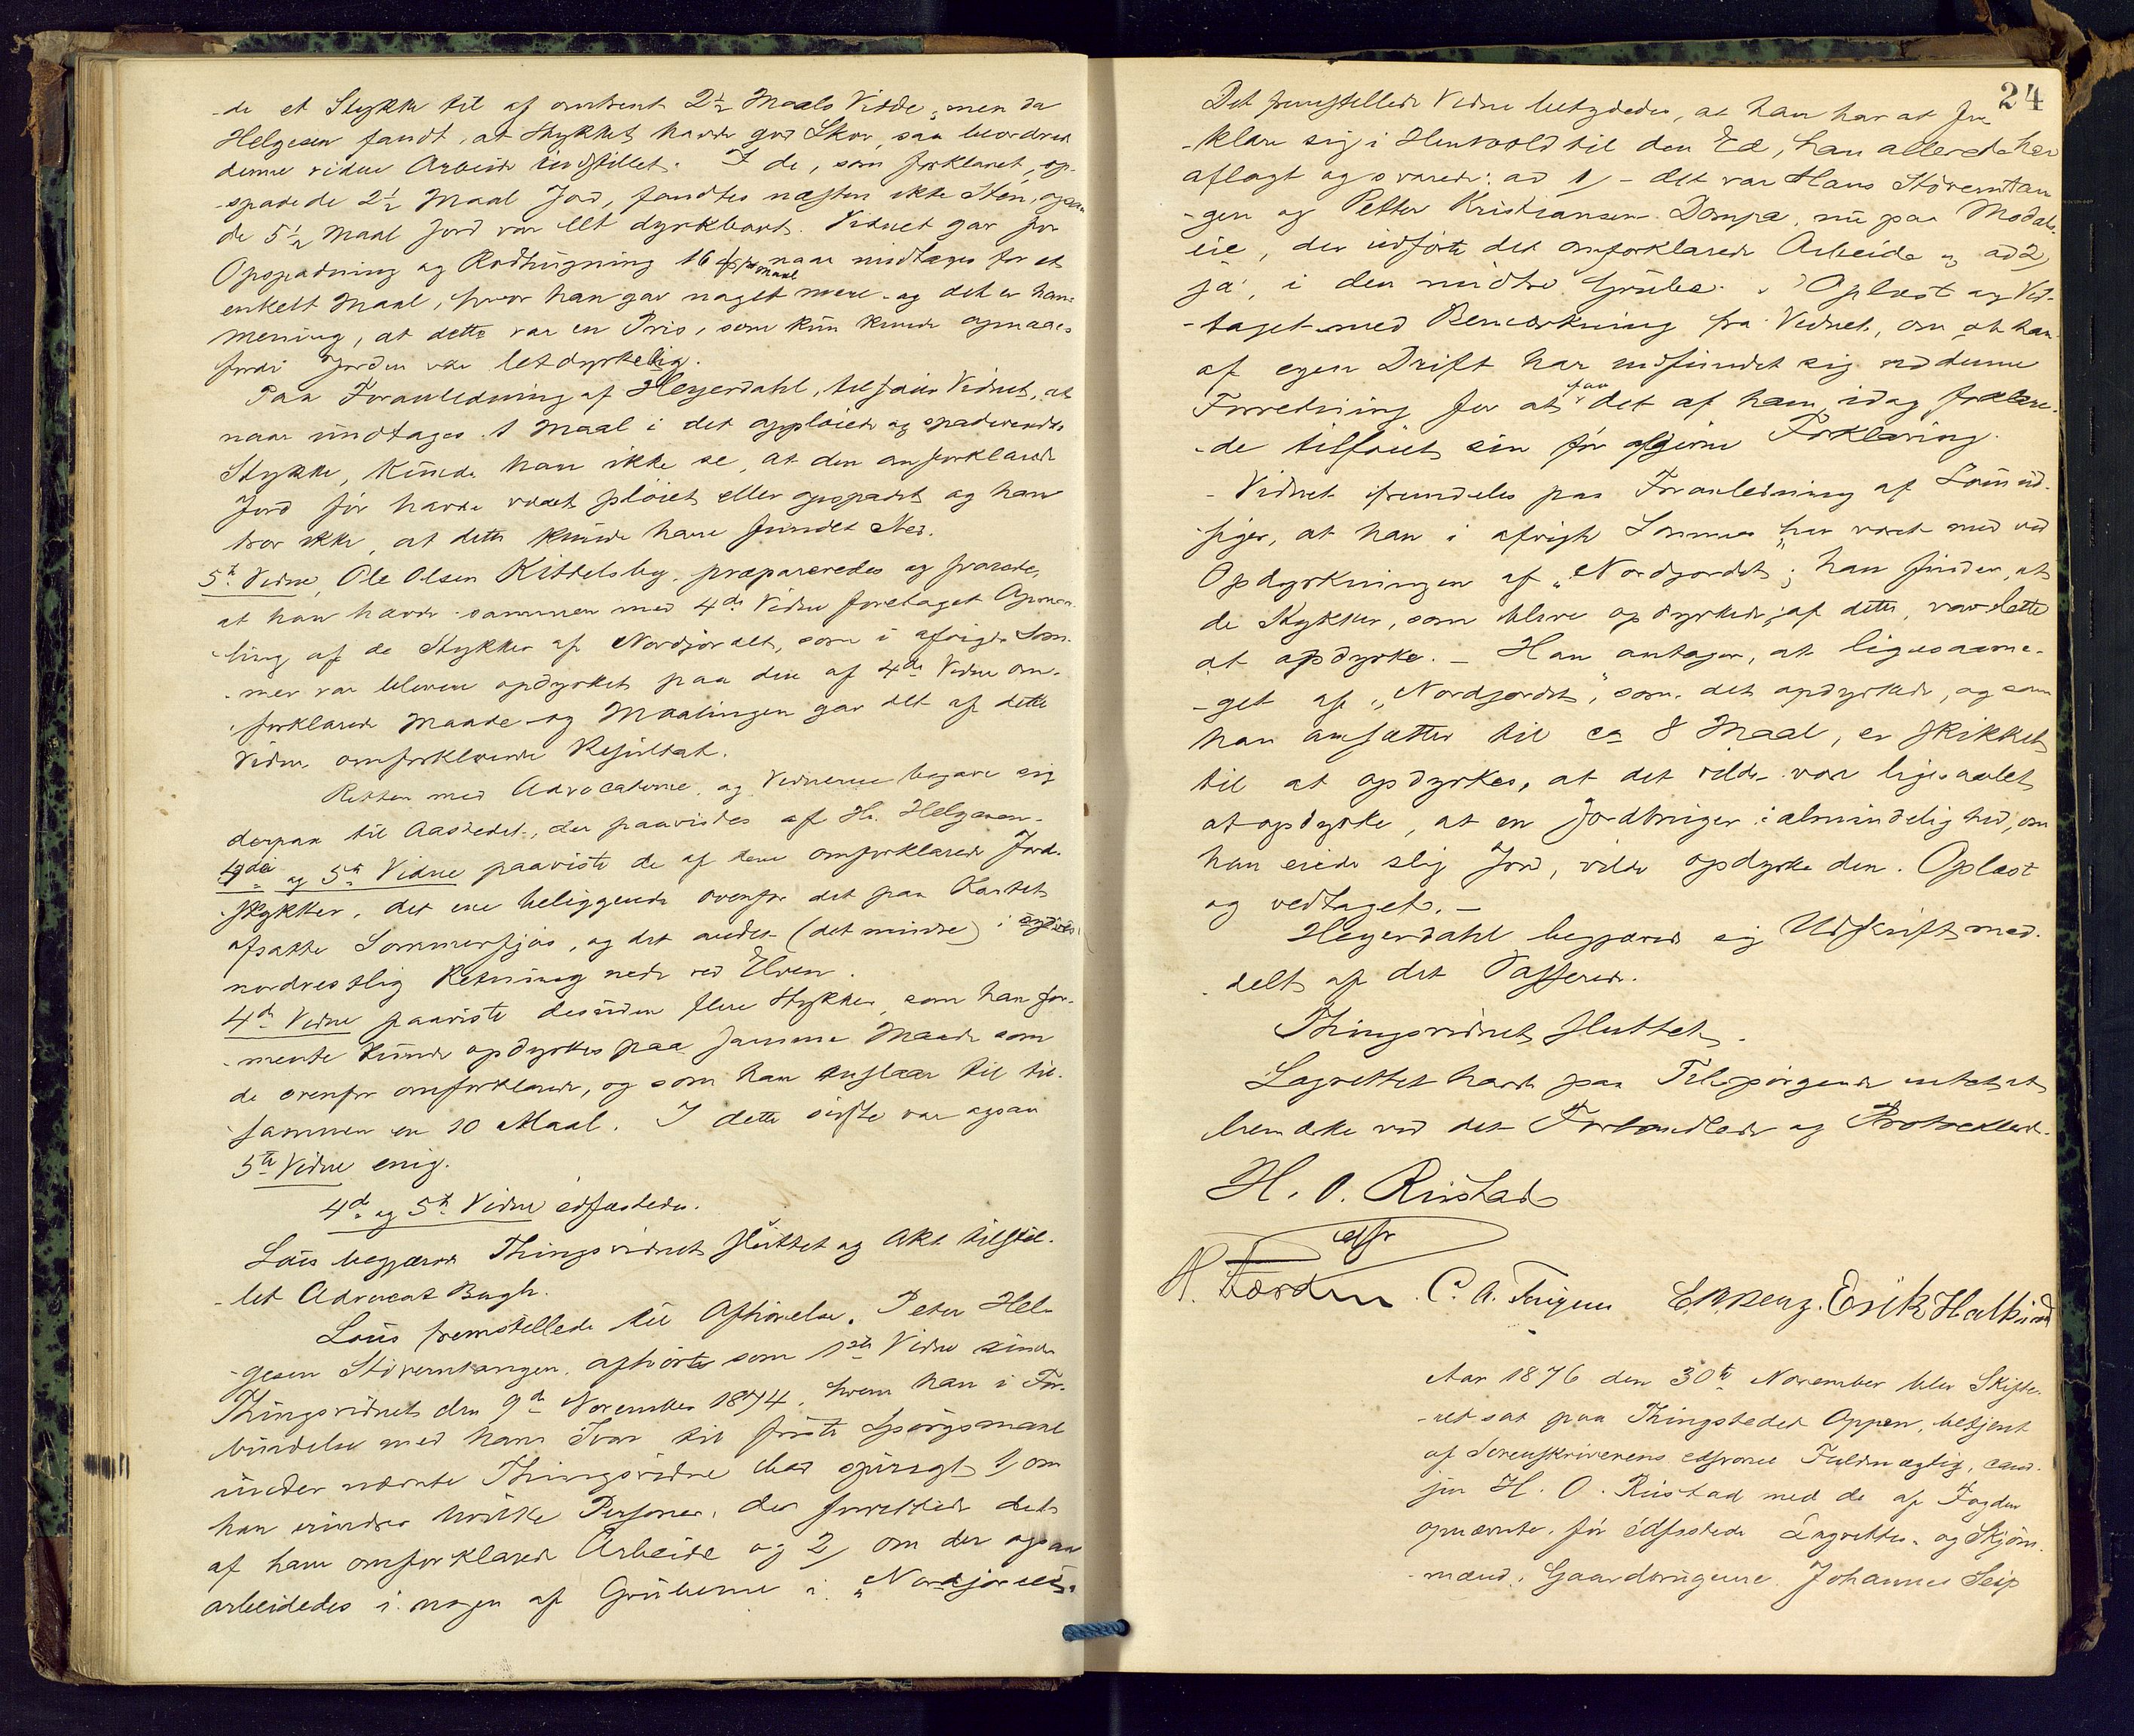 -de et Stykke til af omtrent 2½ Maals Vidde, men da
Helgesen fandt, at Stykket havde god Skov, saa beordred
denne videre Arbeide indstillet. I de, som forklaret, op-
-spadede 2½ Maal Jord, fandtes næsten ikke Sten, ogsaa
de 5½ Maal Jord var let dyrkbart. Vidnet gav for
Opspadning og Rodhugning 16 Spd pr Maal naar undtages for et
enkelt Maal, hvor han gav noget mere - og det er hans
Mening, at dette var en Pris, som kun kunde opnaaes
fordi Jorden var letdyrkelig.
Paa Foranledning af Heyerdahl, tilføier Vidnet, at
naar undtages 1 Maal i det oppløiede og spadevendte
Stykke, kunde han ikke se, at den omforklarede
Jord før havde været pløiet eller opspadet og han
tror ikke, at dette kunde have fundet Sted.
5te Vidne, Ole Olsen Kittelsby, præpareredes og svarede,
at han havde sammen med 4de Vidne foretaget Opmaa-
-ling af de Stykker af Nordjordet, som i afvigte Som-
-mer var bleven opdyrket paa den af 4de Vidne om-
-forklarede Maade og Maalingen gav det af dette
Vidne omforklarede Resultat.
Retten med Advocaterne og Vidnerne begave sig
derpaa til Aastedet, der paavistes af Hr. Helgesen.
4de og 5te Vidne paaviste de af dem omforklarede Jord-
stykker, det ene beliggende ovenfor det paa Kartet
afsatte Sommerfjøs, og det andet (det mindre) i
nordvestlig Retning nede ved Elven.
4de Vidne paaviste desuden flere Stykker, som han for-
-mente kunde opdyrkes paa samme Maade som
de ovenfor omforklarede, og som han anslaar til til-
sammen en 10 Maal. I dette sidste var ogsaa
5te Vidne enig.
4de og 5te Vidne edfæstedes.
Lous begjærede Thingsvidnet sluttet og Akt. tilstil-
-let Advocat Bugh.
Lous fremstillede til Afhørelse, Peter Hel-
-gesen Støverntangen, afhørte som 1ste Vidne under
Thingsvidnet den 9de November 1874, hvem han i For-
bindelse med hans Svar til første Spørgsmaal
under nævnte Thingsvidne bad spurgt 1) om
han erindrer hvilke Personer, der forrettede det
af ham omforklarede Arbeide og 2) om der ogsaa
arbeidedes i nogen af Gruberne i "Nordjordet".
24
Det fremstillede Vidne betydedes, at han har at for-
-klare sig i Henhold til den Ed, han allerede har
aflagt og svarede: ad 1) - det var Hans Støverntan-
-gen og Petter Kristiansen Dompa, nu paa Modals-
eie, der udførte det omforklarede Arbeide og ad 2)
ja, i den midtre Grube. Oplæst og Ved-
-taget med Bemærkning fra Vidnet, om at han
af egen Drift har indfundet sig ved denne
Forretning for at faa det af ham idag forklare-
-de tilføiet sin før afgivne Forklaring.
- Vidnet fremdeles paa Foranledning af Lous ud-
-siger, at han i afvigte Sommer har været med ved
Opdyrkningen af "Nordjordet"; han finder, at
de Stykker, som bleve opdyrkede af dette, var lette
at opdyrke. - Han antager, at ligesaame-
-get af "Nordjordet", som det opdyrkede, og som
han ansætter til ca 8 Maal, er skikket
til at opdyrkes, at det vilde være ligesaalet
at opdyrke, at en Jordbruger i almindelighed, om
han eiede slig Jord, vilde opdyrke den. Oplæst
og vedtaget. -
Heyerdahl begjærede sig Udskrift med-
-delt af det Passerede.
Thingsvidnet sluttet.
Lagrettet havde paa Tilspørgende intet at
bemærke ved det Forhandlede og Protocollerede.
H. O. Rustad
edsv
H. C. A. Erik
Aar 1876 den 30te November blev Skifte-
-ret sat paa Thingstedet Oppen, betjent
af Sorenskriverens edsvorne Fuldmægtig, cand.
jur H. O. Rustad med de af Fogden
opnævnte, før edfæstede Lagrettes- og Skjøns-
-mænd, Gaardbrugerne Johannes Seip